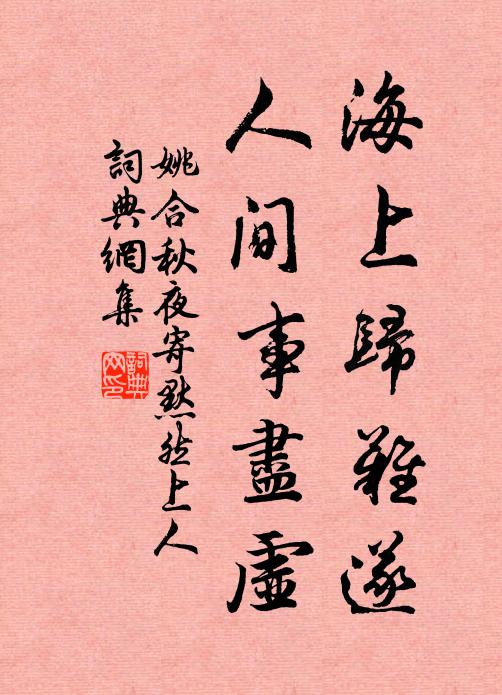 海上歸難遂
人間事盡虛
姚合秋夜寄默然上人
詞典網集
詞典
网印